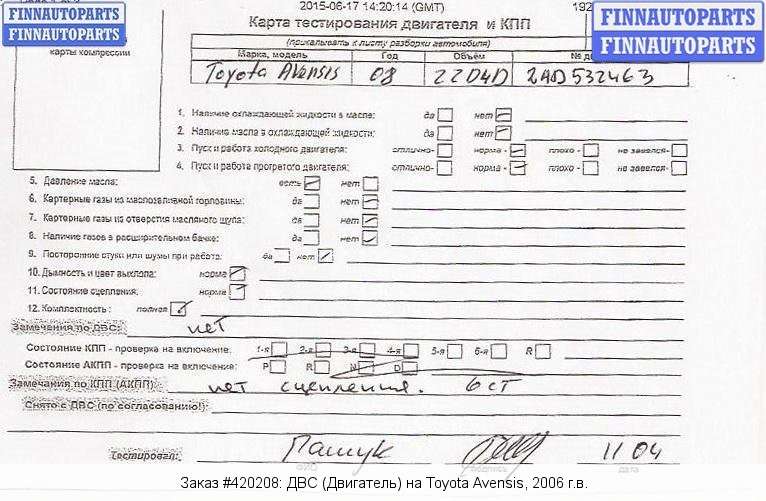 2015-06-17 14:20:14 (GMT)
Карта тестирования двигателя и КПП
FINNAUTOPARTS
FINNAUTOPARTS
FINNAUTOPARTS
FINNAUTOPARTS
(прикалывать к листу разборки автомобиля)
карты компрессии
Марка, модель Год Объём № д
Toyota Avensis 08 22D4D 2AD532463
1. Наличие охлаждающей жидкости в масле: да нет
2. Наличие масла в охлаждающей жидкости: да нет
3. Пуск и работа холодного двигателя: отлично- норма - плохо - не завелся-
4. Пуск и работа прогретого двигателя: отлично- норма - плохо - не завелся-
5. Давление масла: есть нет
6. Картерные газы из маслозаливной горловины: да нет
7. Картерные газы из отверстия масляного щупа: да нет
8. Наличие газов в расширительном бачке: да нет
9. Посторонние стуки или шумы при работе: да нет
10. Дымность и цвет выхлопа: норма
11. Состояние сцепления: норма
12. Комплектность: полная
Замечания по ДВС: нет
Состояние КПП - проверка на включение: 1-я 2-я 3-я 4-я 5-я 6-я R
Состояние АКПП - проверка на включение: P R N D
Замечания по КПП (АКПП): нет сцепления. 6 ст
Снято с ДВС (по согласованию!):
Тестировал: Пашук 11 04
ФИО подпись дата
Заказ #420208: ДВС (Двигатель) на Toyota Avensis, 2006 г.в.